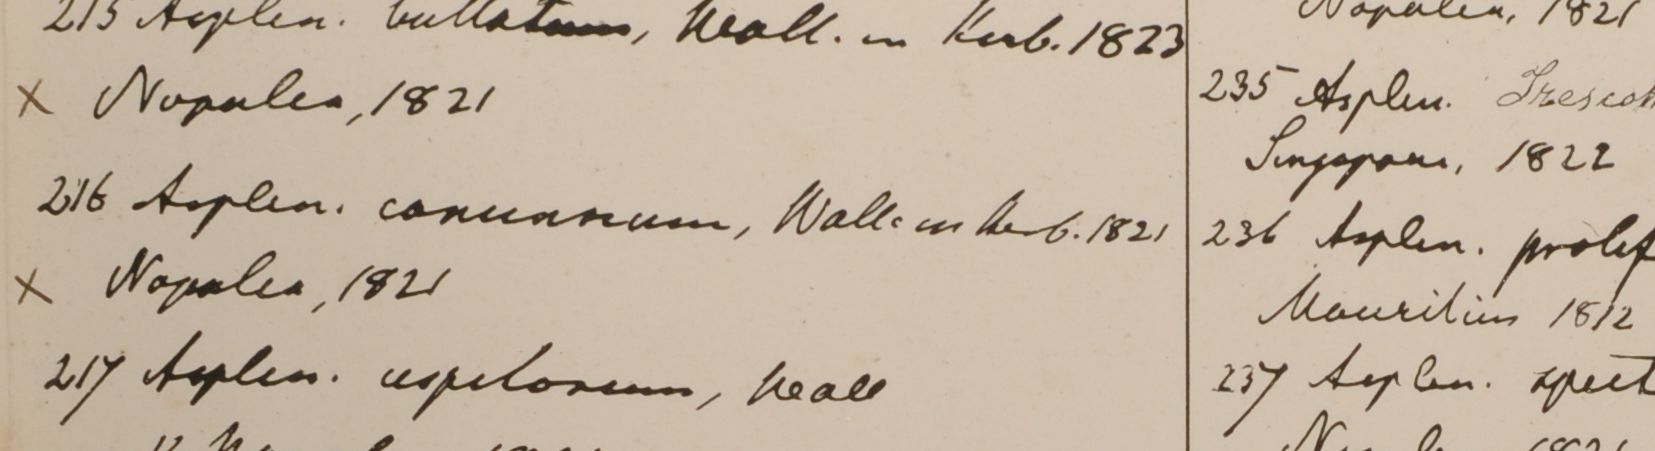 215 Asplen. bullatum, Wall. in Herb. 1823
x Napalea, 1821
216 Asplen. concinnum, Wall. in Herb. 1821
x Napalea, 1821
217 Asplen. cespitosum, Wall
Napalea, 1821
235 Asplen. Trescott
Singapore, 1822
236 Asplen. prolif
Mauritius 1812
237 Asplen. spect